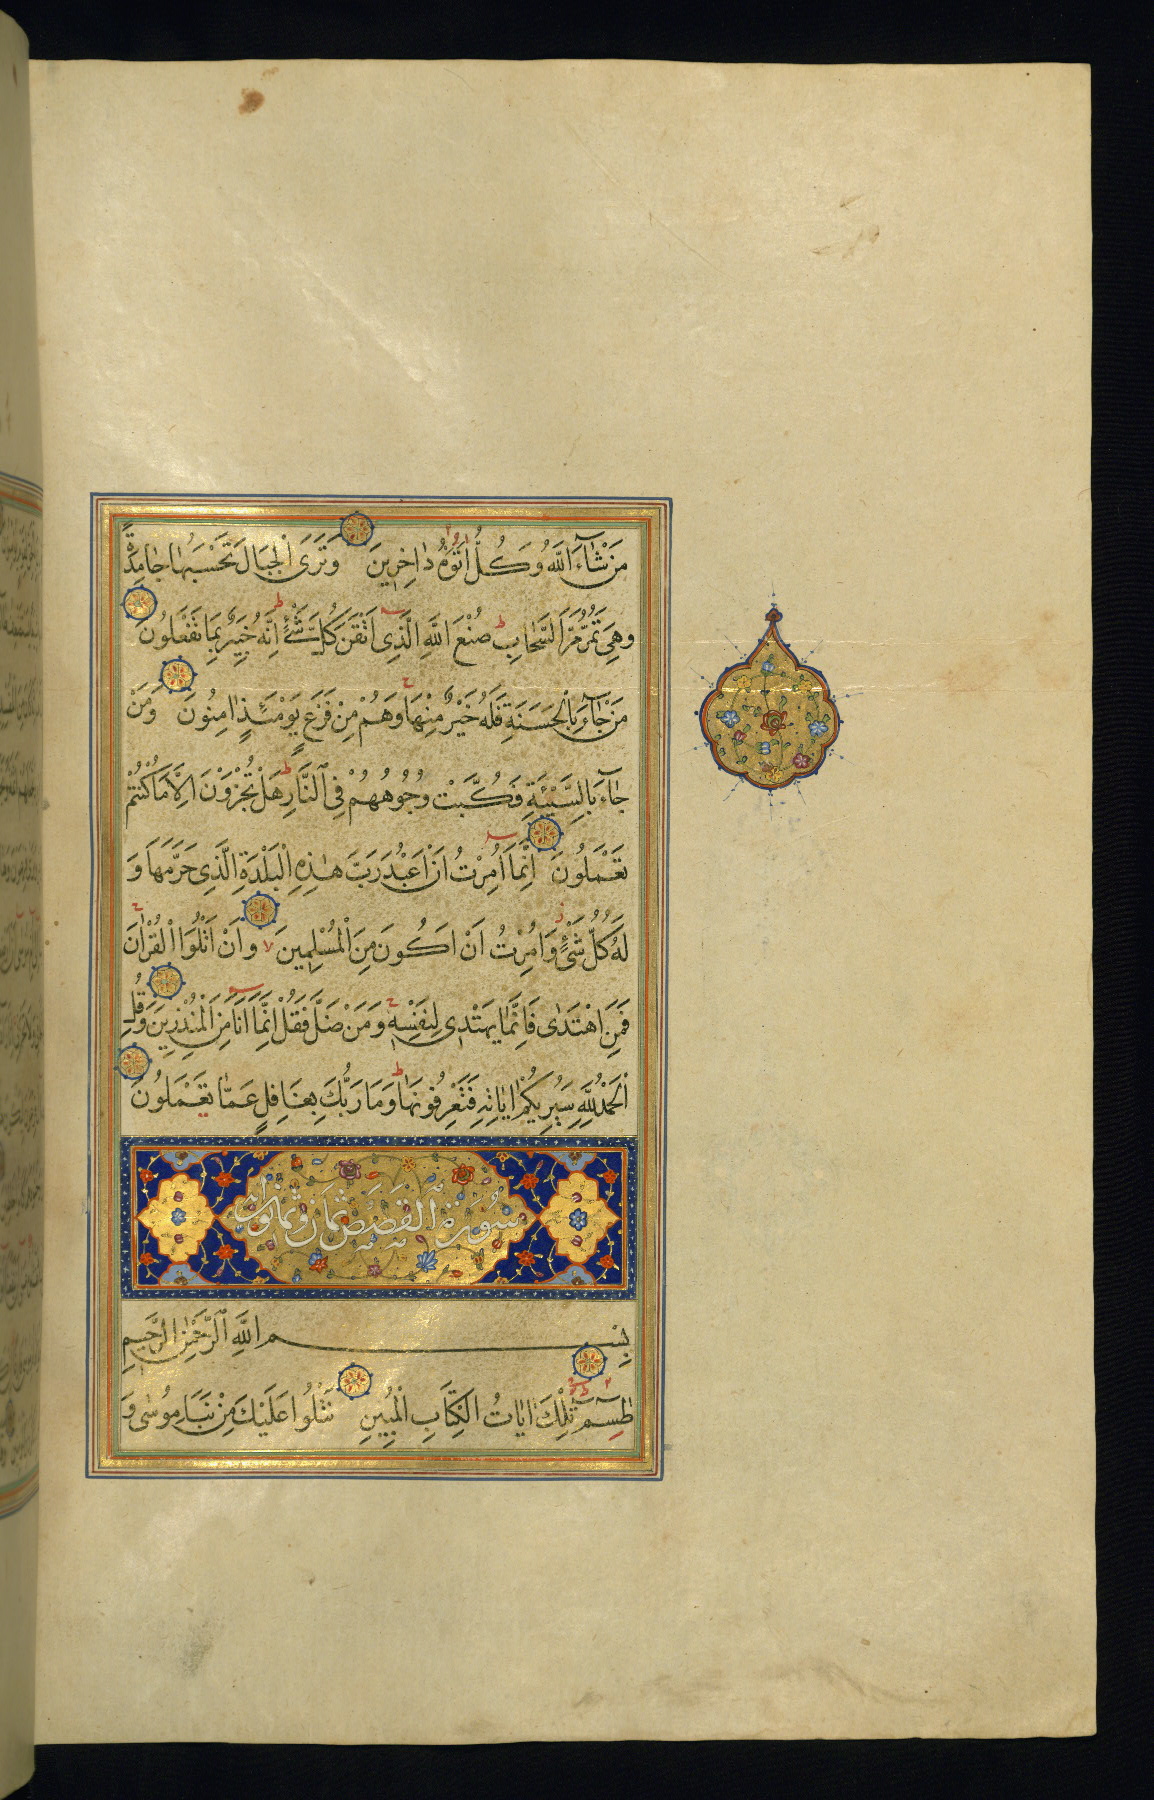 مَنْ شَاءَ اللَّهُ وَكُلٌّ اَتَوْهُ دَاخِرِينَ وَتَرَى الْجِبَالَ تَحْسَبُهَا جَامِدَةً
وَهِيَ تَمُرُّ مَرَّ السَّحَابِ صُنْعَ اللَّهِ الَّذِى اَتْقَنَ كُلَّ شَىْءٍ اِنَّهُ خَبِيرٌ بِمَا تَفْعَلُونَ
مَنْ جَاءَ بِالْحَسَنَةِ فَلَهُ خَيْرٌ مِنْهَا وَهُمْ مِنْ فَزَعٍ يَوْمَئِذٍ اٰمِنُونَ وَمَنْ
جَاءَ بِالسَّيِّئَةِ فَكُبَّتْ وُجُوهُهُمْ فِى النَّارِ هَلْ تُجْزَوْنَ اِلَّا مَا كُنْتُمْ
تَعْمَلُونَ اِنَّمَا اُمِرْتُ اَنْ اَعْبُدَ رَبَّ هٰذِهِ الْبَلْدَةِ الَّذِى حَرَّمَهَا وَ
لَهُ كُلُّ شَىْءٍ وَاُمِرْتُ اَنْ اَكُونَ مِنَ الْمُسْلِمِينَ وَاَنْ اَتْلُوَا الْقُرْاٰنَ
فَمَنِ اهْتَدٰى فَاِنَّمَا يَهْتَدِى لِنَفْسِهِ وَمَنْ ضَلَّ فَقُلْ اِنَّمَا اَنَا مِنَ الْمُنْذِرِينَ وَقُلِ
الْحَمْدُ لِلّٰهِ سَيُرِيكُمْ اٰيَاتِهِ فَتَعْرِفُونَهَا وَمَا رَبُّكَ بِغَافِلٍ عَمَّا تَعْمَلُونَ
سُورَةُ الْقَصَصِ ثمان وثمانون
بِسْمِ اللَّهِ الرَّحْمٰنِ الرَّحِيمِ
طٰسٓمٓ تِلْكَ اٰيَاتُ الْكِتَابِ الْمُبِينِ نَتْلُوا عَلَيْكَ مِنْ نَبَاِ مُوسٰى وَ